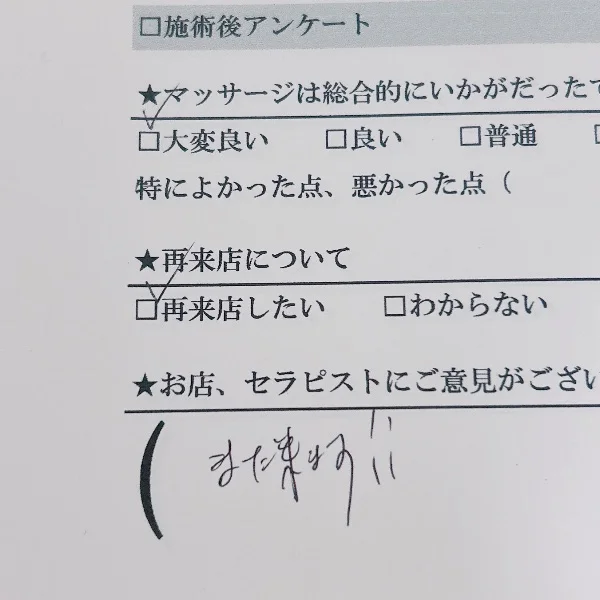 □施術後アンケート
★マッサージは総合的にいかがだったで
□大変良い □良い □普通
特によかった点、悪かった点（
★再来店について
□再来店したい □わからない
★お店、セラピストにご意見がござい
（また来ます!!